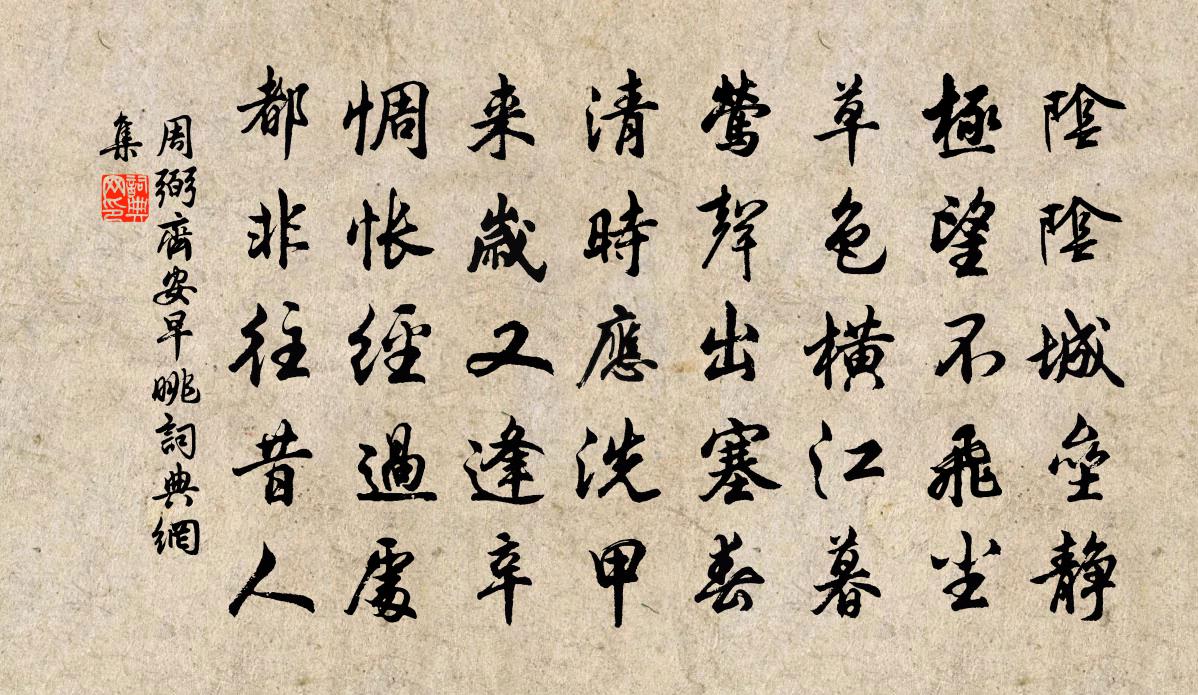 陰陰城壘靜
極望不飛尘
草色橫江暮
鶯聲出塞春
清時應洗甲
来歲又逢辛
惆悵經過處
都非往昔人
周弼齊安早眺詞典網
集
詞典
网印